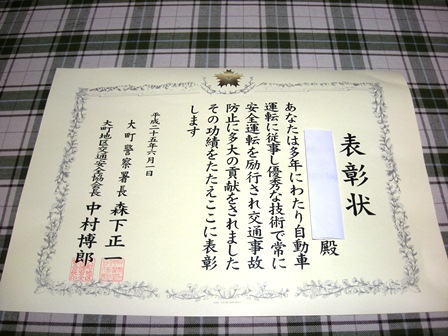 表彰状
殿
あなたは多年にわたり自動車
運転に従事し優秀な技術で常に
安全運転を励行され交通事故
防止に多大の貢献をされました
その功績をたたえここに表彰
します
平成二十五年六月一日
大町警察署長 森下正一
大町地区交通安全協会長 中村博郎